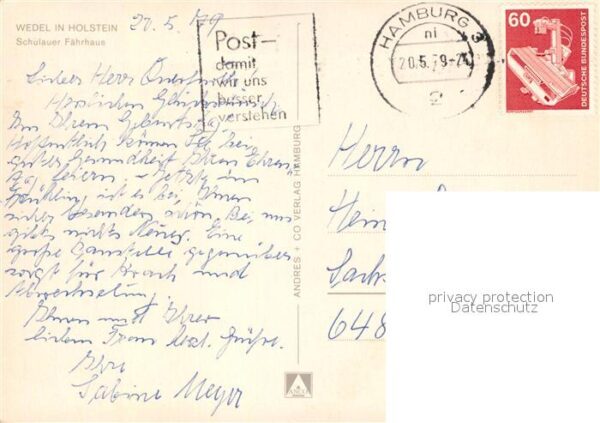 WEDEL IN HOLSTEIN
Schulauer Fährhaus
20.5.79
Post-
damit
wir uns
besser
verstehen
HAMBURG
20.5.79-21
60
DEUTSCHE BUNDESPOST
Lieber Herr
Herzlichen Glückwunsch
zu Ihrem Geburtstag
Hoffentlich können Sie bei
guter Gesundheit Ihren Ehren
tag feiern. Jetzt im
Frühling ist es bei Ihnen
sicher besonders schön. Bei uns
gibt's nichts Neues. Eine
große Baustelle gegenüber
sorgt für Krach und
Abwechselung.
Ihnen und Ihrer
lieben Frau herzl. Grüße.
Ihre
Sabine Meyer
ANDRES + CO VERLAG HAMBURG
Herrn
Hein
Sachs
648
privacy protection
Datenschutz